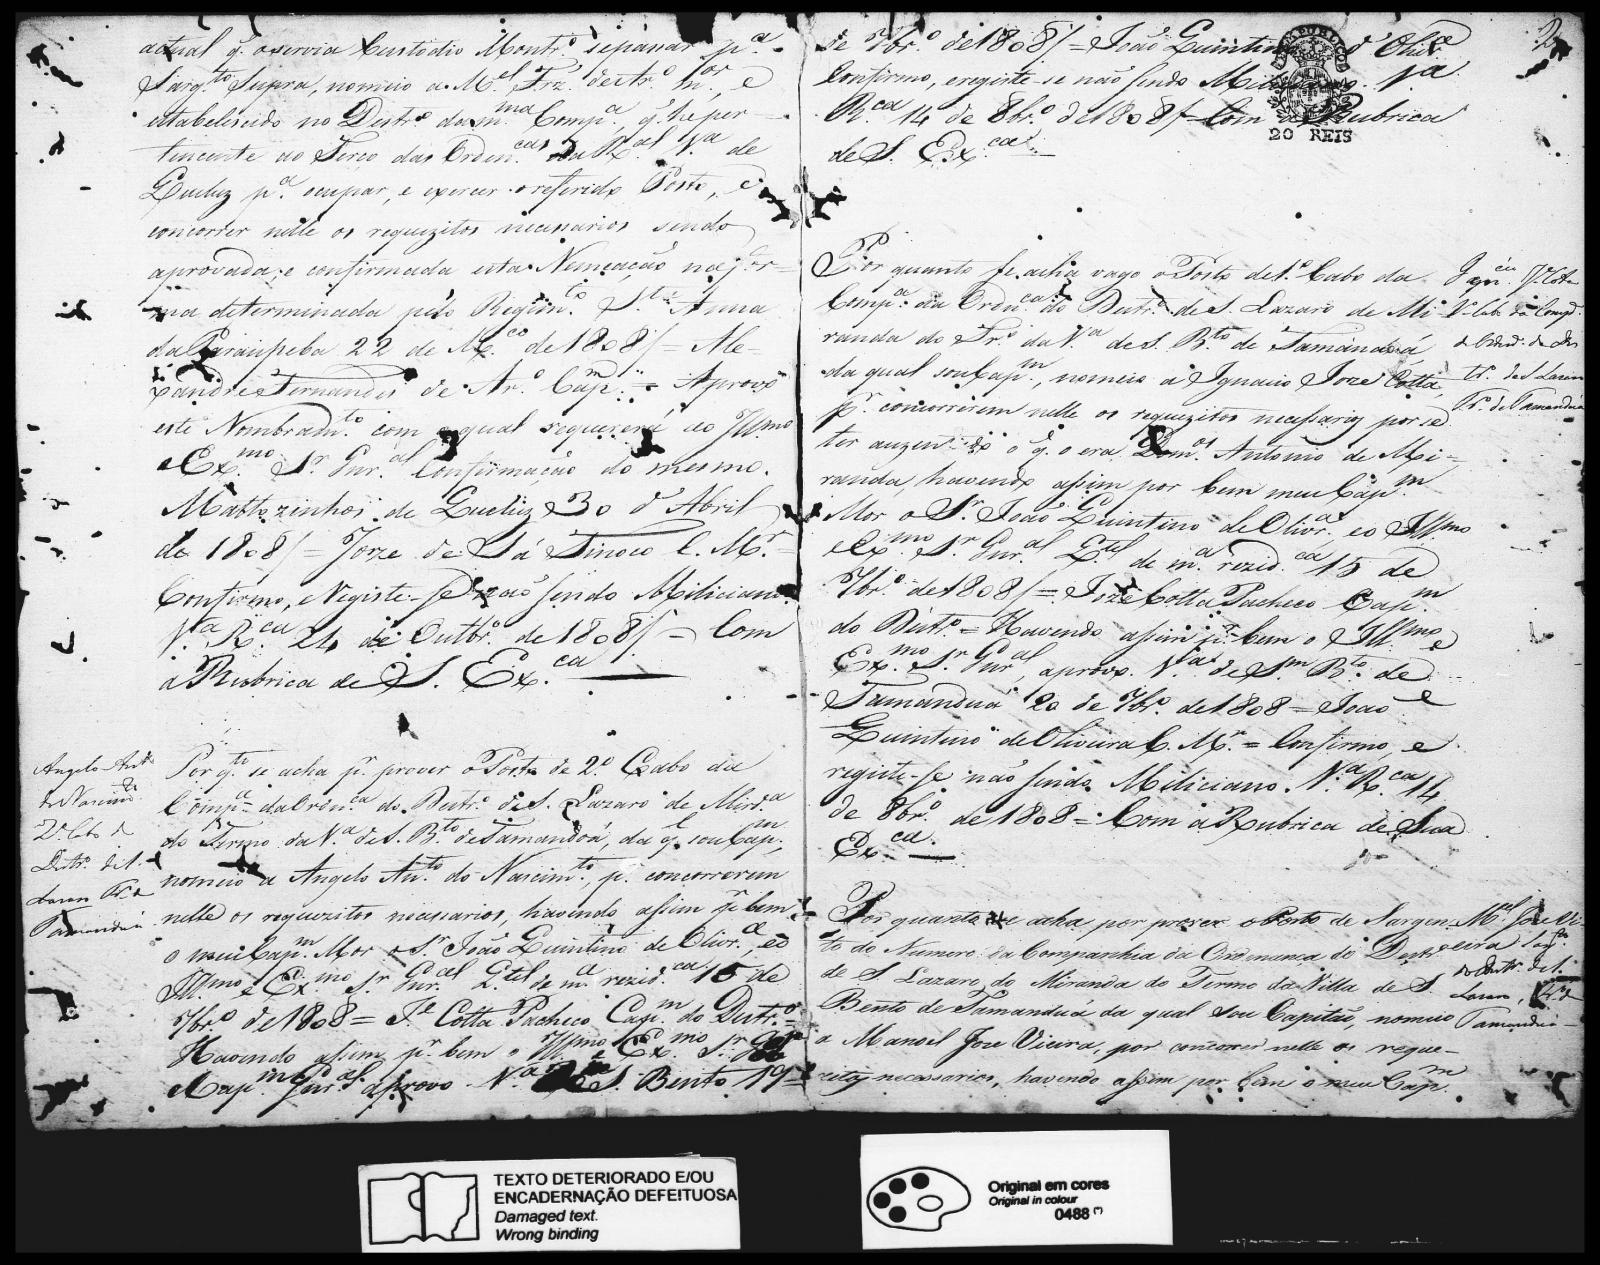 actual q. o servia Custodio Montr.º separar p.ª
Sarg.to Supra, nomeio a M.el Frz. destr.º m.or, e
estabelescido no Destr.º da m.ma Comp.ª q. he per-
tencente ao Terço das Orden.cas da R.al V.ª de
Queluz p.ª ocupar, e exercer o referido Posto, e
concorrer nelle os requezitos necessarios sendo
aprovada, e confirmada esta Numeação na for-
ma determinada pelo Regim.to St.ª Anna
da Paraupeba 22 de M.co de 1808/ = Ale-
xandre Fernandes de Ar.º Cap.m = Aprovo
este Nombram.to com o qual requererá ao Ill.mo
e Ex.mo Sr. Gnr.al Confirmação do mesmo.
Mattozinhos de Queluz 30 d'Abril
de 1808/ = Jorze de Sá Tinoco C. M.r =
Confirmo, e Registe-se não sendo Miliciano.
V.ª R.ca 24 de Outbr.º de 1808/ = Com
a Rubrica de S. Ex.ca
Angelo Ant.º
do Nascim.to
2º Cabo do
Destr.º de S.
Lazaro Tr.º de
Tamanduá
Por q.to se acha p.r prover o Posto de 2.º Cabo da
Comp.ª da Orden.ca do Destr.º de S. Lazaro de Mird.ª
do Termo da V.ª de S. B.to de Tamandoá, da q.l sou Cap.m,
nomeio a Angelo An.to do Nascim.to, p.r concorrerem
nelle os requezitos necessarios, havendo assim p.r bem
o meu Cap.m Mor o Sr. João Quintino de Olivr.ª, e o
Ill.mo e Ex.mo Sr. Gnr.al Q.tel de m.ª rezid.ca 15 de
7br.º de 1808 = J.e Cotta Pacheco Cap.m do Destr.º =
Havendo assim p.r bem o Ill.mo e Ex.mo Sr.
Cap.m Gnr.al aprovo V.ª de S. Bento 19
2
de 7br.º de 1808/ = João Quintino d'Olivr.ª
Confirmo, e registe-se não sendo Miliciano. V.ª
R.ca 14 de 8br.º de 1808/ = Com a Rubrica
de S. Ex.ca
PUBLICO
20 REIS
Por quanto se acha vago o Posto de 1.º Cabo da
Comp.ª da Orden.ca do Destr.º de S. Lazaro de Mi
randa do Tr.º da V.ª de S. B.to de Tamanduá
da qual sou Cap.m, nomeio a Ignacio Joze Cotta,
p.r concorrerem nelle os requezitos necessarios por se
ter auzen do o q. o era Dom.os Antonio de Mi=
randa, havendo assim por bem meu Cap.m
Mor o Sr. João Quintino de Olivr.ª e o Ill.mo
e Ex.mo Sr. Gnr.al Q.tel de m.ª rezid.ca 15 de
7br.º de 1808/ = Joze Cotta Pacheco Cap.m
do Destr.º = Havendo assim p.r bem o Ill.mo e
Ex.mo Sr. Gnr.al, aprovo. V.ª de S.m B.to de
Tamanduá 20 de 7br.º de 1808 = João
Quintino de Oliveira C. M.r = Confirmo, e
registe-se não sendo Miliciano. V.ª R.ca 14
de 8br.º de 1808 = Com a Rubrica de Sua
Ex.ca
Ignácio J.e Cotta
1º Cab. da Comp.
de S. Lazaro
Tr.º de Tamanduá
Por quanto se acha por prover o Posto de Sargen
to do Numero da Companhia da Ordenança do Destr.º
de S. Lazaro do Miranda do Termo da Villa de S.
Bento de Tamanduá da qual sou Capitão, nomeio
a Manoel Joze Vieira, por concorrer nelle os reque-
zitos necessarios, havendo assim por bem o meu Cap.m
M.el Joze Vi-
eira Sarg.to
do Destr.º de S.
Lazaro, Tr.º de
Tamanduá
TEXTO DETERIORADO E/OU
ENCADERNAÇÃO DEFEITUOSA
Damaged text.
Wrong binding
Original em cores
Original in colour
0488 (*)